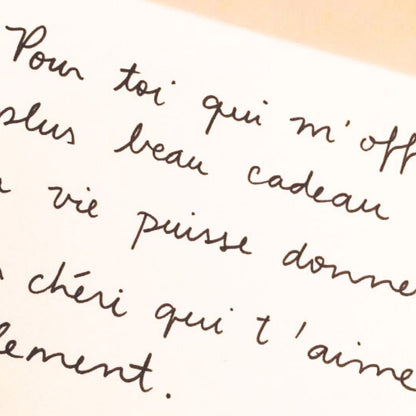 Pour toi qui m'off
plus beau cadeau
vie puisse donne
chéri qui t'aime
lement.